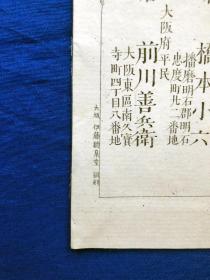 橋本小六
播磨明石郡明石
忠度町廿二番地
大阪府平民
前川善兵衛
大阪東區南久寶
寺町四丁目八番地